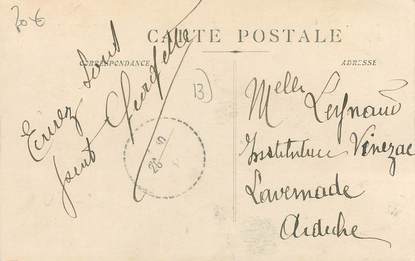 20€
CARTE POSTALE
CORRESPONDANCE
ADRESSE
Ecrivez
Georgette
13
26
Melle Leynaud
Institutrice Vinezac
Lavernade
Ardèche